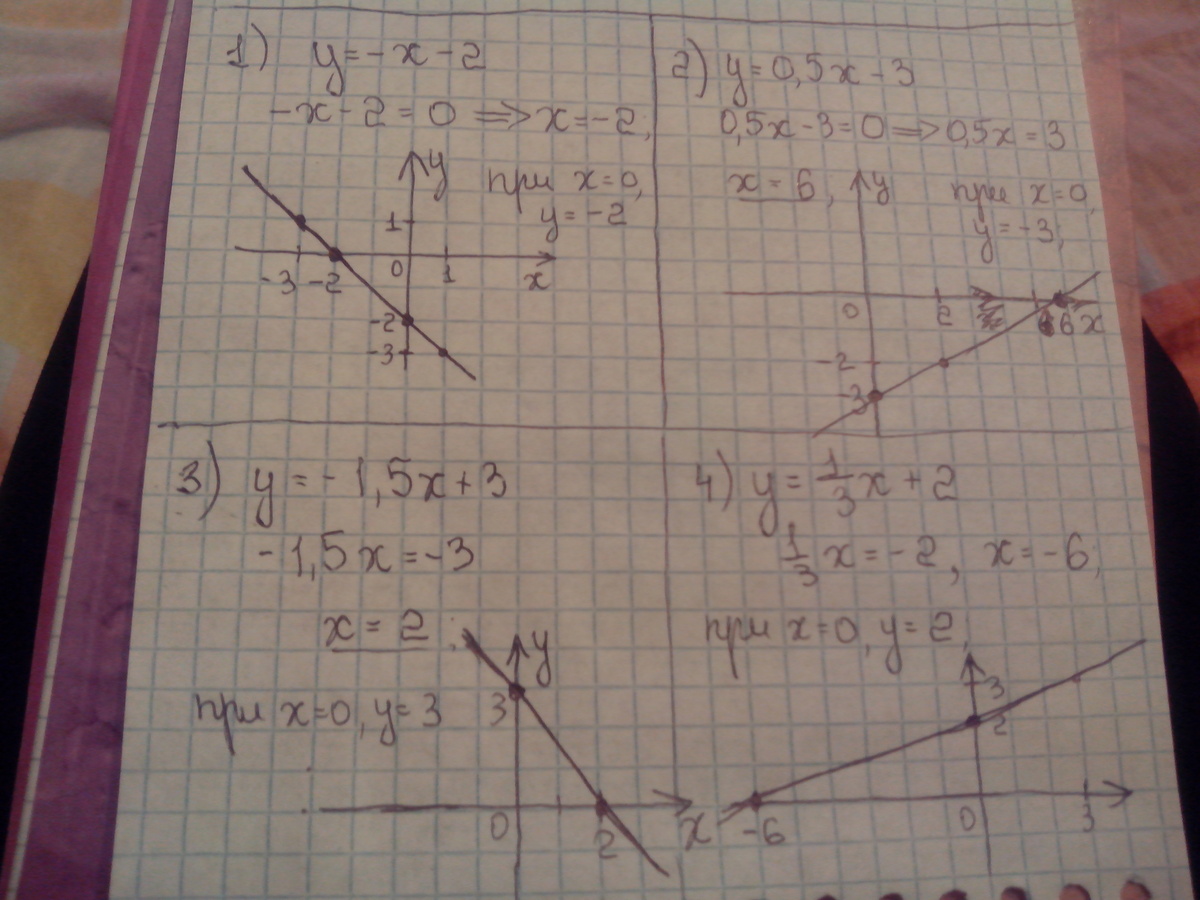 1) y=-x-2
-x-2=0 => x=-2,
y
при x=0,
y=-2
1
-3 -2 0 1 x
-2
-3
2) y=0,5x-3
0,5x-3=0 => 0,5x=3
x=6, y
при x=0,
y=-3;
0 2 6 x
-2
-3
3) y=-1,5x+3
-1,5x=-3
x=2;
y
при x=0, y=3
3
0 2 x
4) y=1/3x+2
1/3x=-2, x=-6;
при x=0, y=2;
3
2
-6 0 3